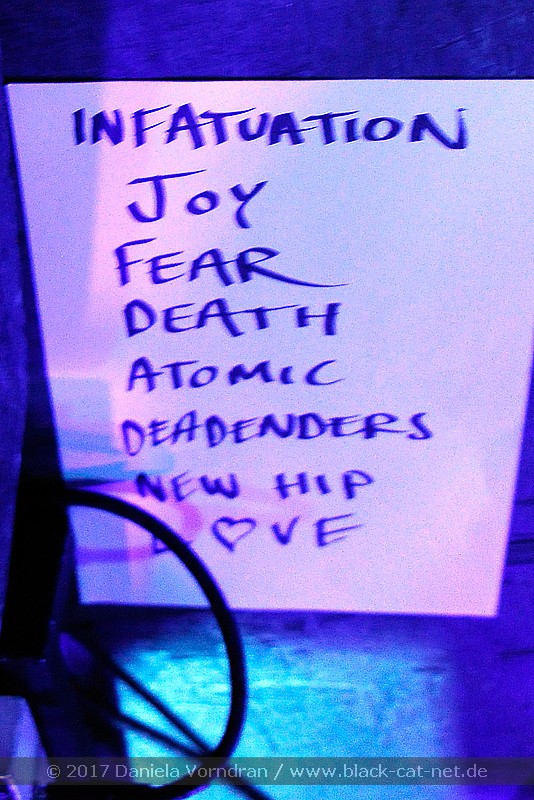 INFATUATION
JOY
FEAR
DEATH
ATOMIC
DEADENDERS
NEW HIP
L♡VE
© 2017 Daniela Vorndran / www.black-cat-net.de